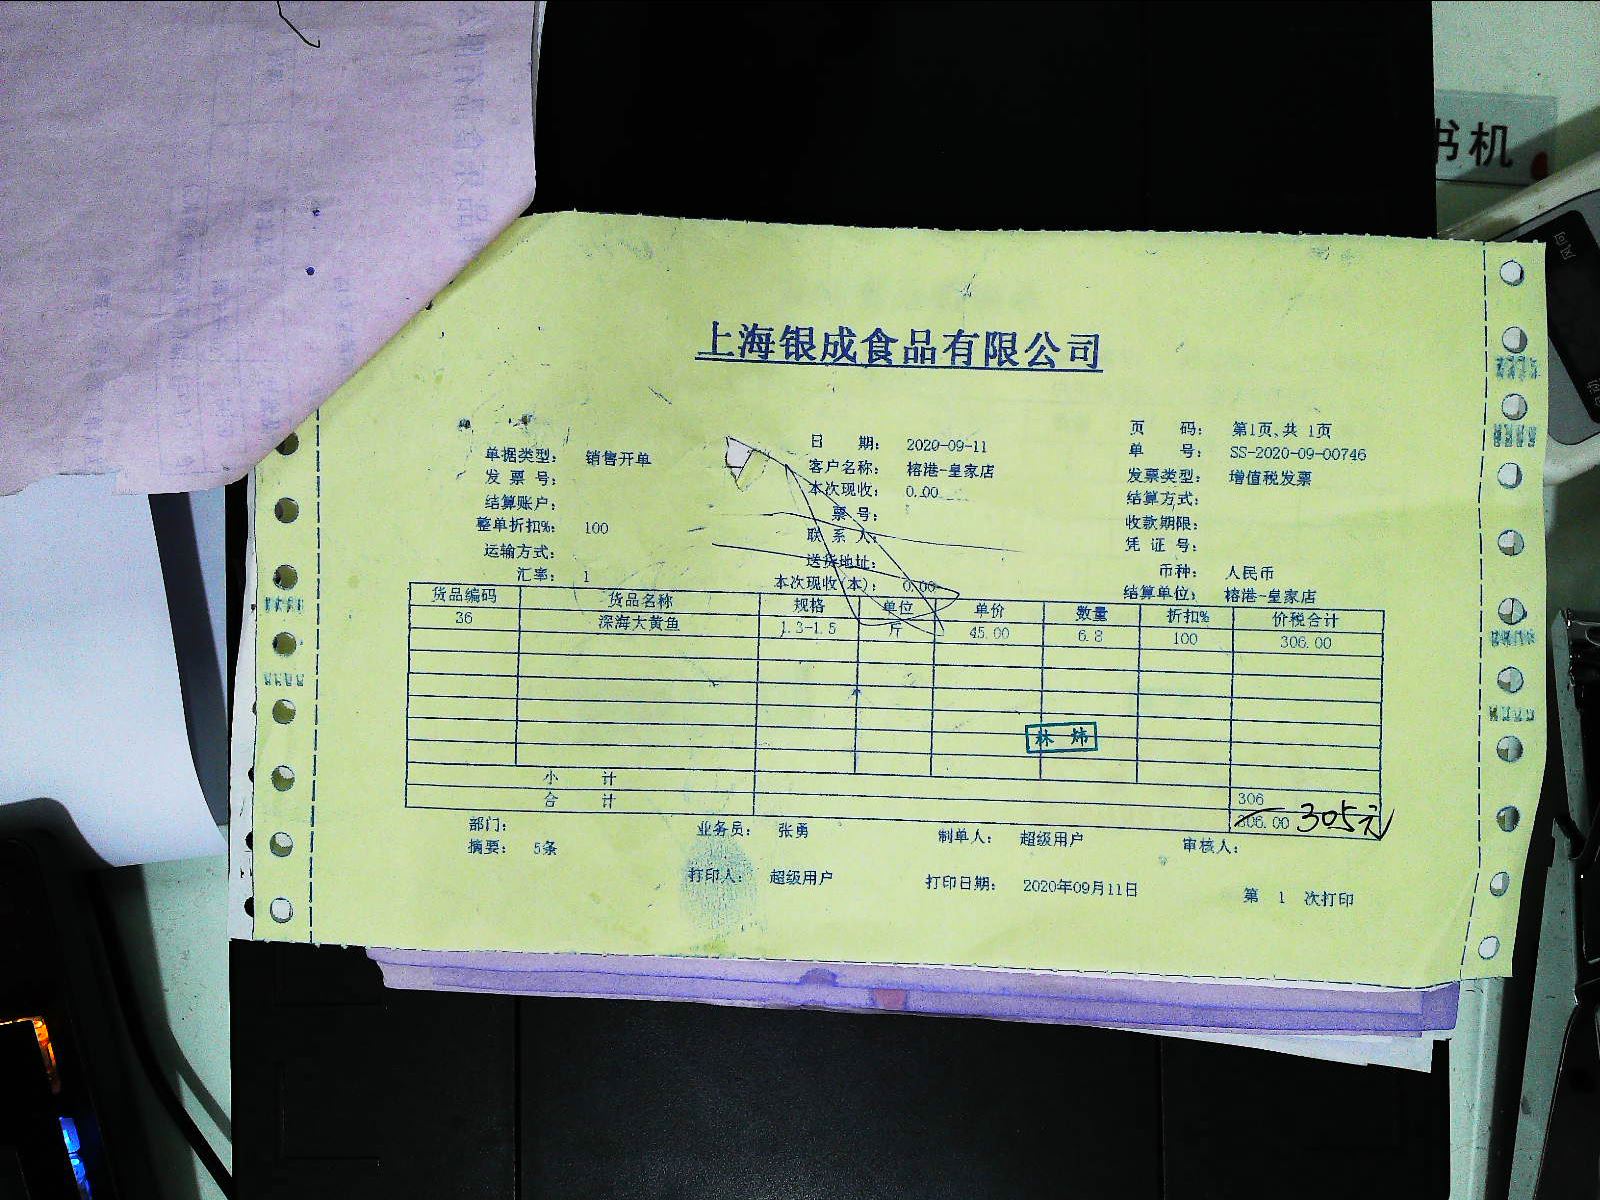 书机
上海银成食品有限公司
单据类型： 销售开单
发 票 号：
结算账户：
整单折扣%： 100
运输方式：
汇率： 1
日 期： 2020-09-11
客户名称： 榕港-皇家店
本次现收： 0.00
票 号：
联 系 人：
送货地址：
本次现收(本)： 0.00
页 码： 第1页,共 1页
单 号： SS-2020-09-00746
发票类型： 增值税发票
结算方式：
收款期限：
凭 证 号：
币种： 人民币
结算单位： 榕港-皇家店
货品编码 货品名称 规格 单位 单价 数量 折扣% 价税合计
36 深海大黄鱼 1.3-1.5 斤 45.00 6.8 100 306.00
林 炜
小 计 306
合 计 306.00 305元
部门： 业务员： 张勇 制单人： 超级用户 审核人：
摘要： 5条
打印人： 超级用户 打印日期： 2020年09月11日 第 1 次打印